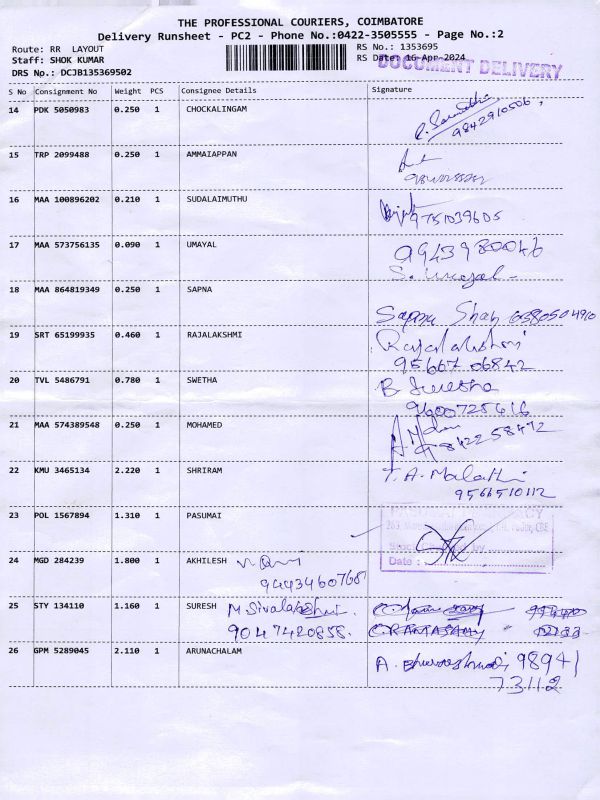 THE PROFESSIONAL COURIERS, COIMBATORE
Delivery Runsheet - PC2 - Phone No.:0422-3505555 - Page No.:2
Route: RR LAYOUT
Staff: SHOK KUMAR
DRS No.: DCJB135369502
RS No.: 1353695
RS Date: 16-Apr-2024
DOCUMENT DELIVERY
S No Consignment No Weight PCS Consignee Details Signature
14 PDK 5050983 0.250 1 CHOCKALINGAM
9842910506
15 TRP 2099488 0.250 1 AMMAIAPPAN
16 MAA 100896202 0.210 1 SUDALAIMUTHU
9751039605
17 MAA 573756135 0.090 1 UMAYAL
9943980046
S. Umayal
18 MAA 864819349 0.250 1 SAPNA
Sapna Shah 6380504910
19 SRT 65199935 0.460 1 RAJALAKSHMI
Rajalakshmi
95667 06842
20 TVL 5486791 0.780 1 SWETHA
B Swetha
9600725616
21 MAA 574389548 0.250 1 MOHAMED
9842258472
22 KMU 3465134 2.220 1 SHRIRAM
T. A. Malathi
9566510112
23 POL 1567894 1.310 1 PASUMAI
PASUMAI
Date :
24 MGD 284239 1.800 1 AKHILESH
9443460768
25 STY 134110 1.160 1 SURESH M. Sivalakshmi
9047420858. C RAMASAMY
26 GPM 5289045 2.110 1 ARUNACHALAM
A. Bhuvaneshwari 98941
73112